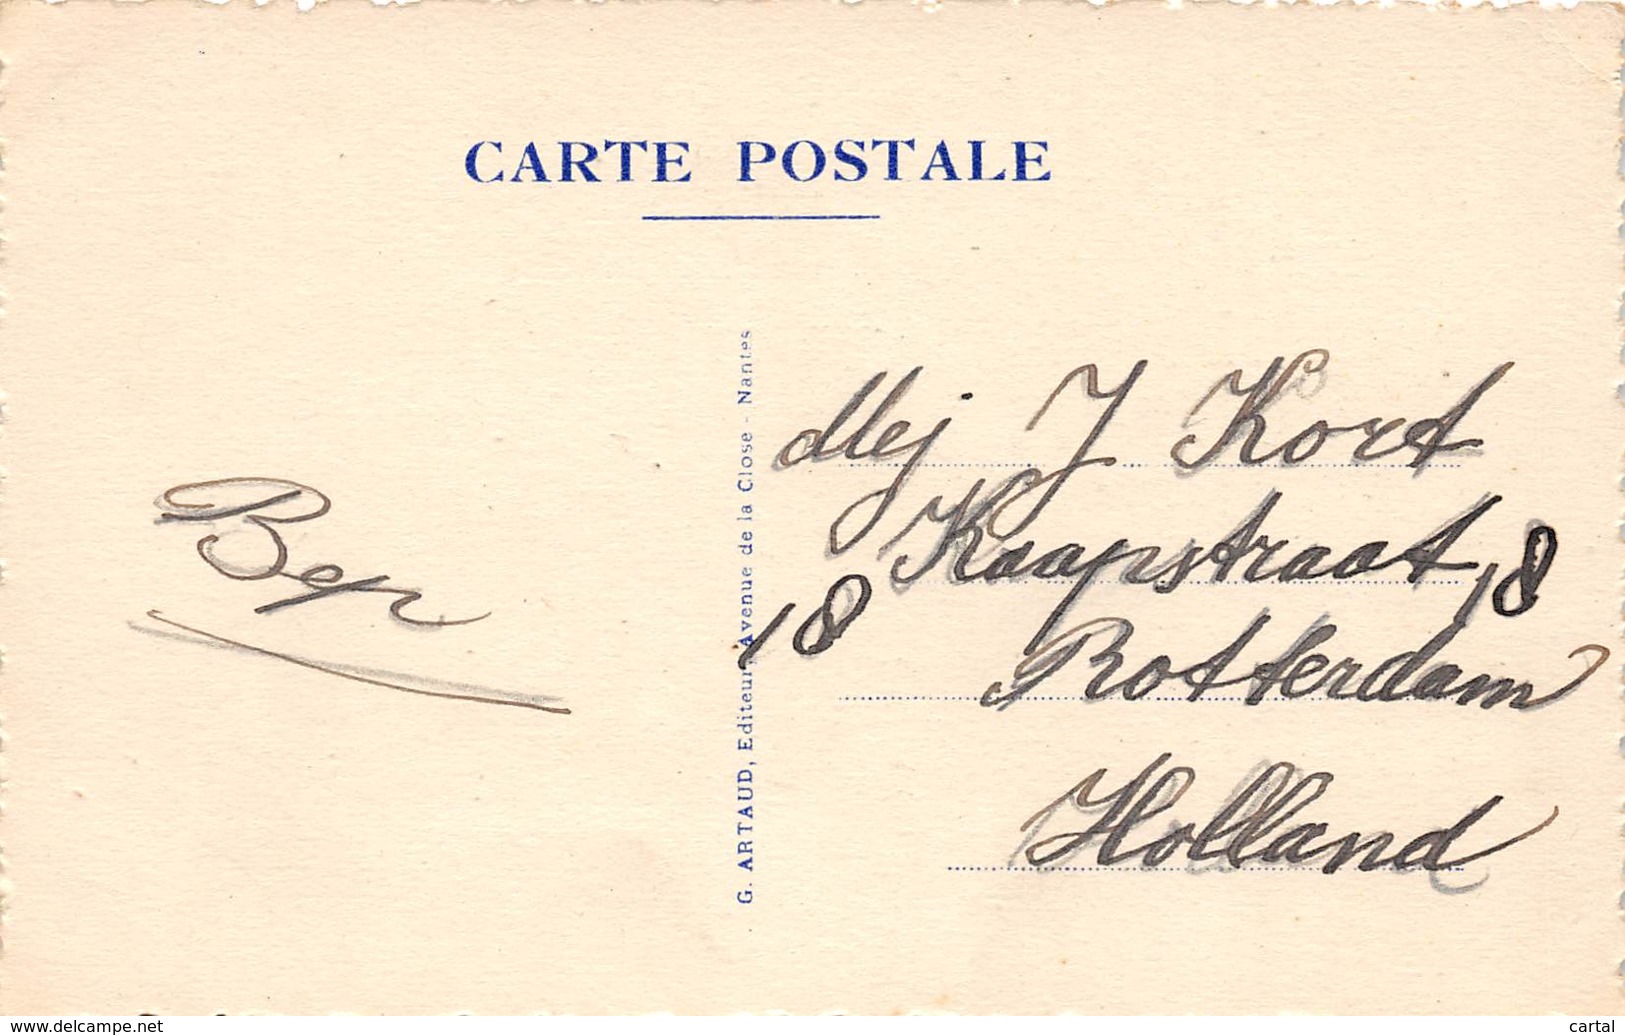 CARTE POSTALE
G. ARTAUD, Editeur, Avenue de la Close - Nantes
Bep
Mej J Kort
Kaapstraat 18
18
Rotterdam
Holland
www.delcampe.net
cartal